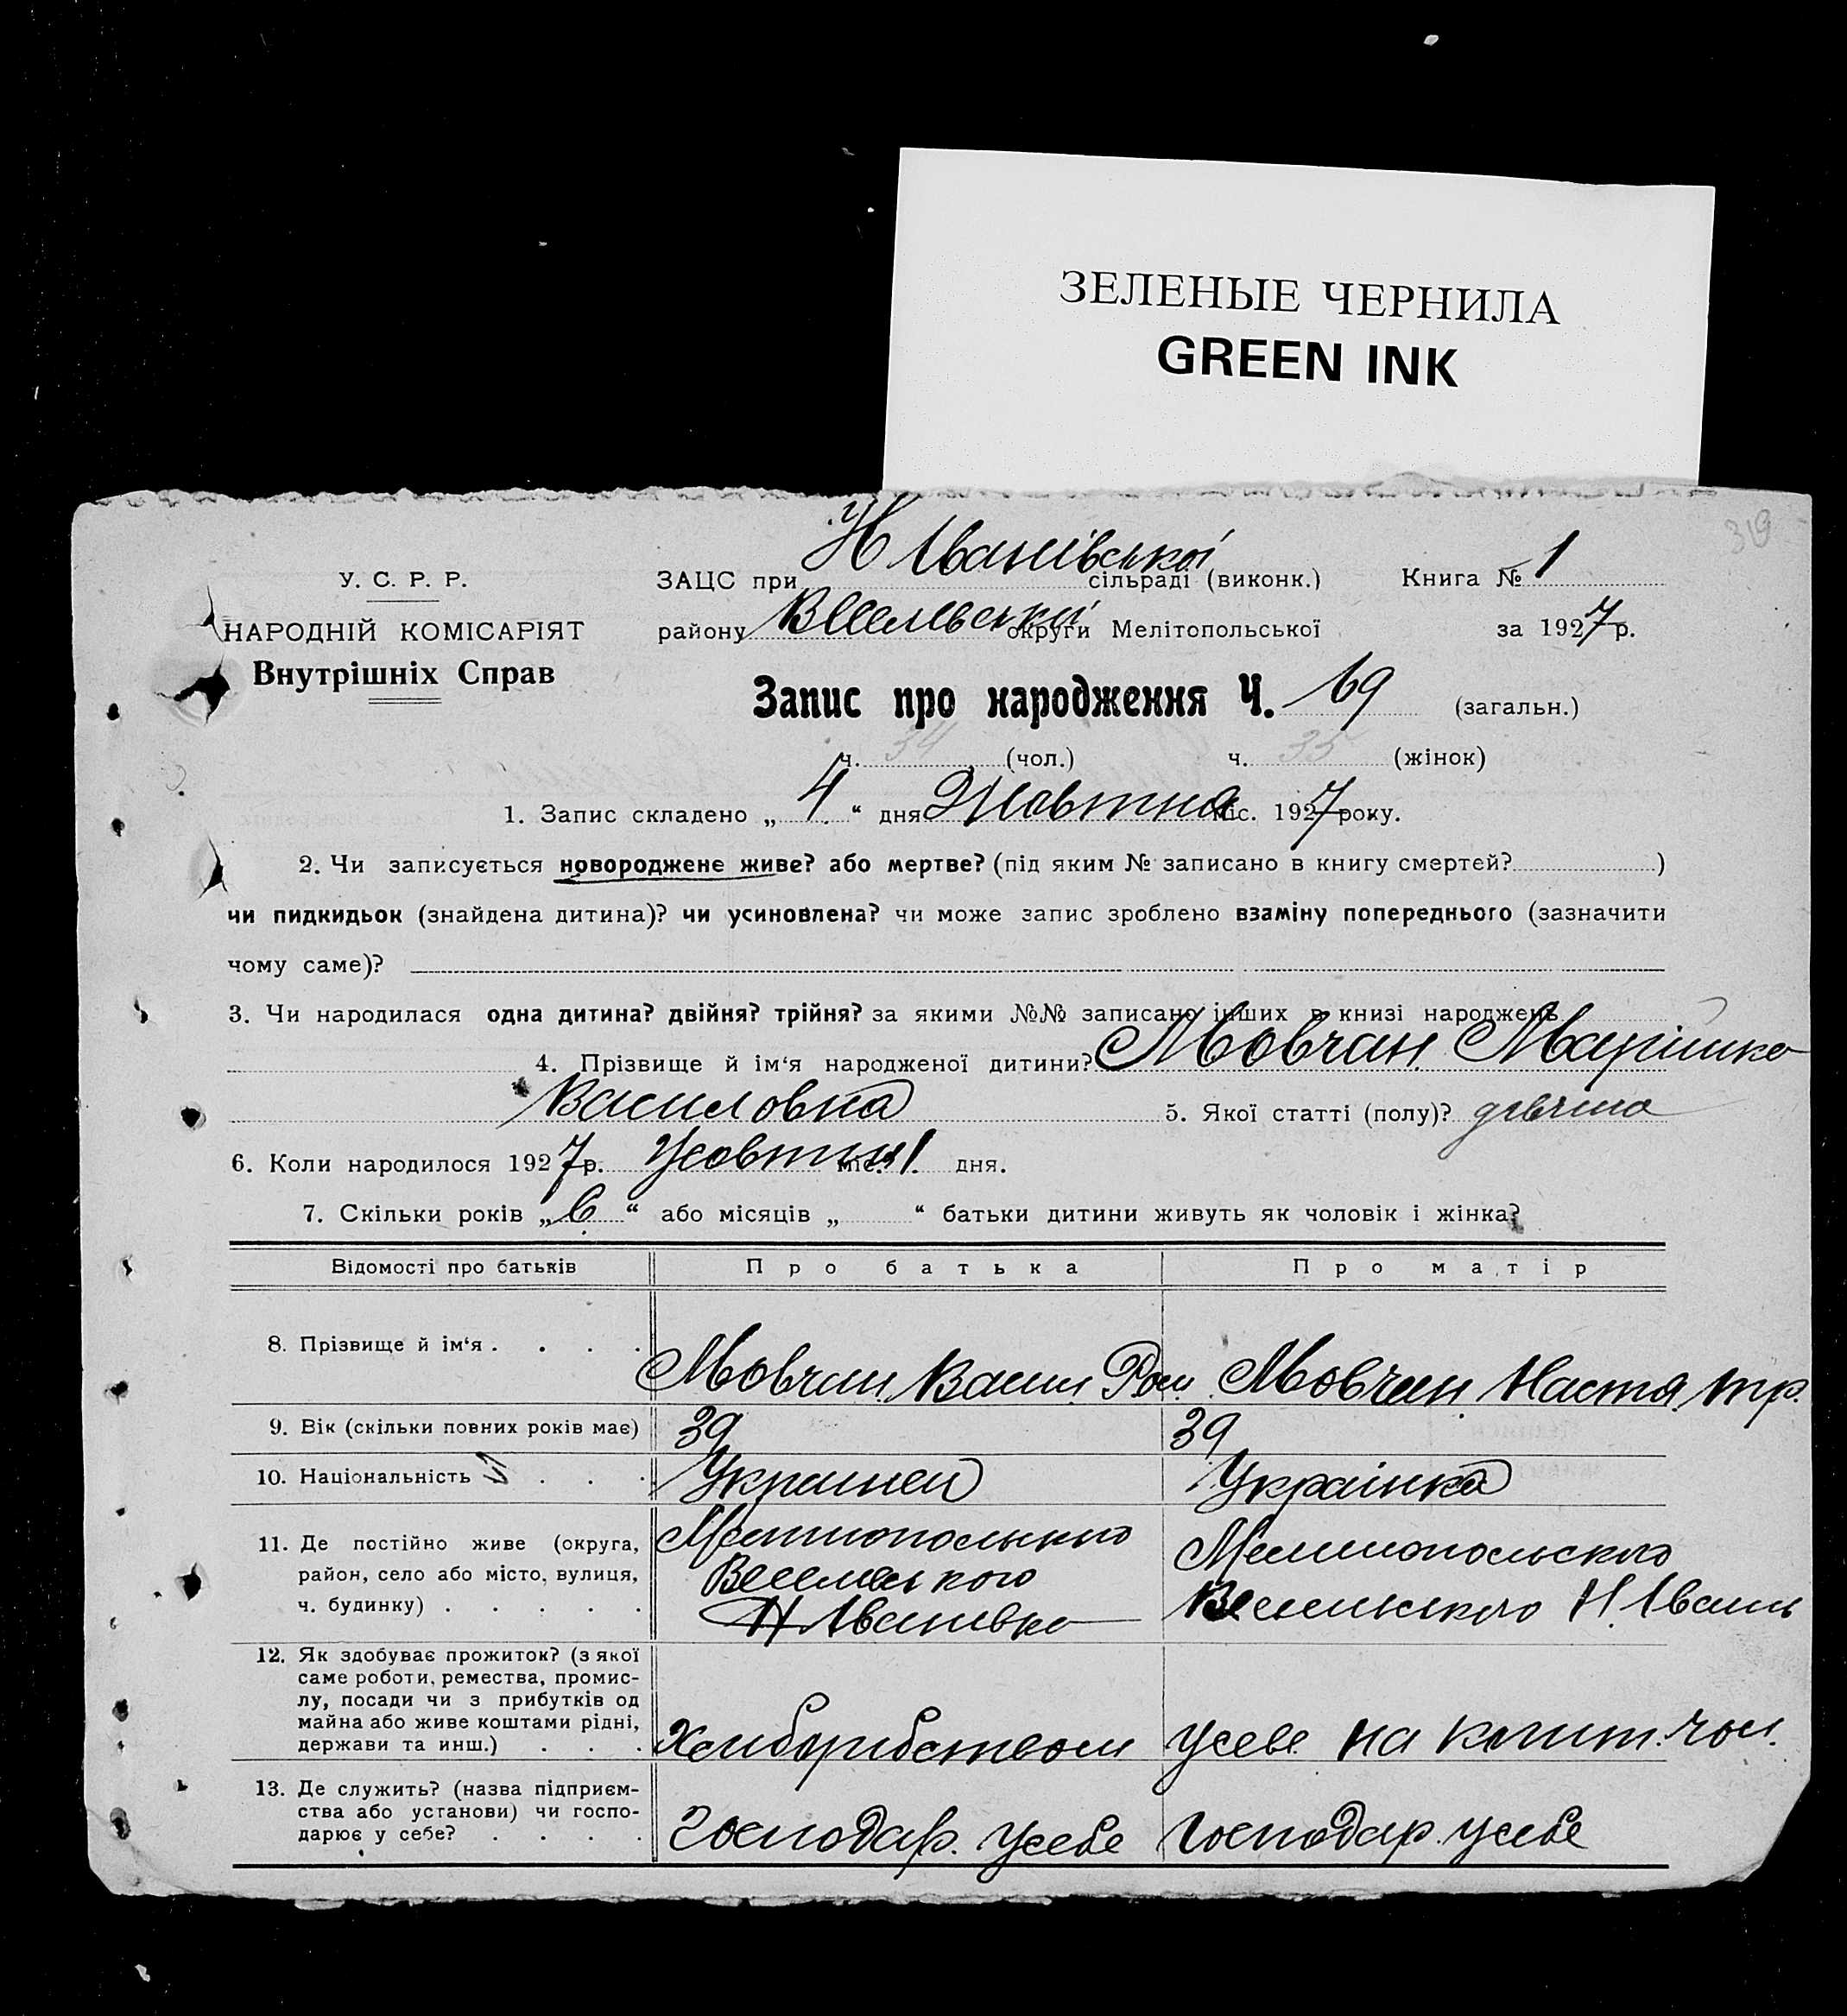 ЗЕЛЕНЫЕ ЧЕРНИЛА
GREEN INK
319
У. С. Р. Р.
НАРОДНІЙ КОМІСАРІЯТ
Внутрішніх Справ
ЗАЦС при Н Іванівської сільраді (виконк.) Книга № 1
району округи Мелітопольської за 1927 р.
Запис про народження Ч. 69 (загальн.)
ч. 34 (чол.) ч. 35 (жінок)
1. Запис складено „ 4 “ дня Жовтня міс. 1927 року.
2. Чи записується новороджене живе? або мертве? (під яким № записано в книгу смертей? )
чи пидкидьок (знайдена дитина)? чи усиновлена? чи може запис зроблено взаміну попереднього (зазначити
чому саме)?
3. Чи народилася одна дитина? двійня? трійня? за якими №№ записано інших в книзі народжень
4. Прізвище й ім‘я народженої дитини? Мовчан
Василовна 5. Якої статті (полу)? дівчина
6. Коли народилося 1927 р. Жовтня міс. 1 дня.
7. Скільки років „ 6 “ або місяців „ “ батьки дитини живуть як чоловік і жінка?
Відомості про батьків Про батька Про матір
8. Прізвище й ім‘я . . . . Мовчан Васил Ром Мовчан Настя тр.
9. Вік (скільки повних років має) 39 39
10. Національність . . . Українка
11. Де постійно живе (округа,
район, село або місто, вулиця,
ч. будинку) . . . . .
Мелітопольського
Веселоського
Н Іванівка
Мелітопольского
Н Івань
12. Як здобуває прожиток? (з якої
саме роботи, ремества, промис-
лу, посади чи з прибутків од
майна або живе коштами рідні,
держави та инш.) . . .
Хлиборибством усебе на чол.
13. Де служить? (назва підприєм-
ства або установи) чи госпо-
дарює у себе? . . . .
Господар. усебе Господар. усебе